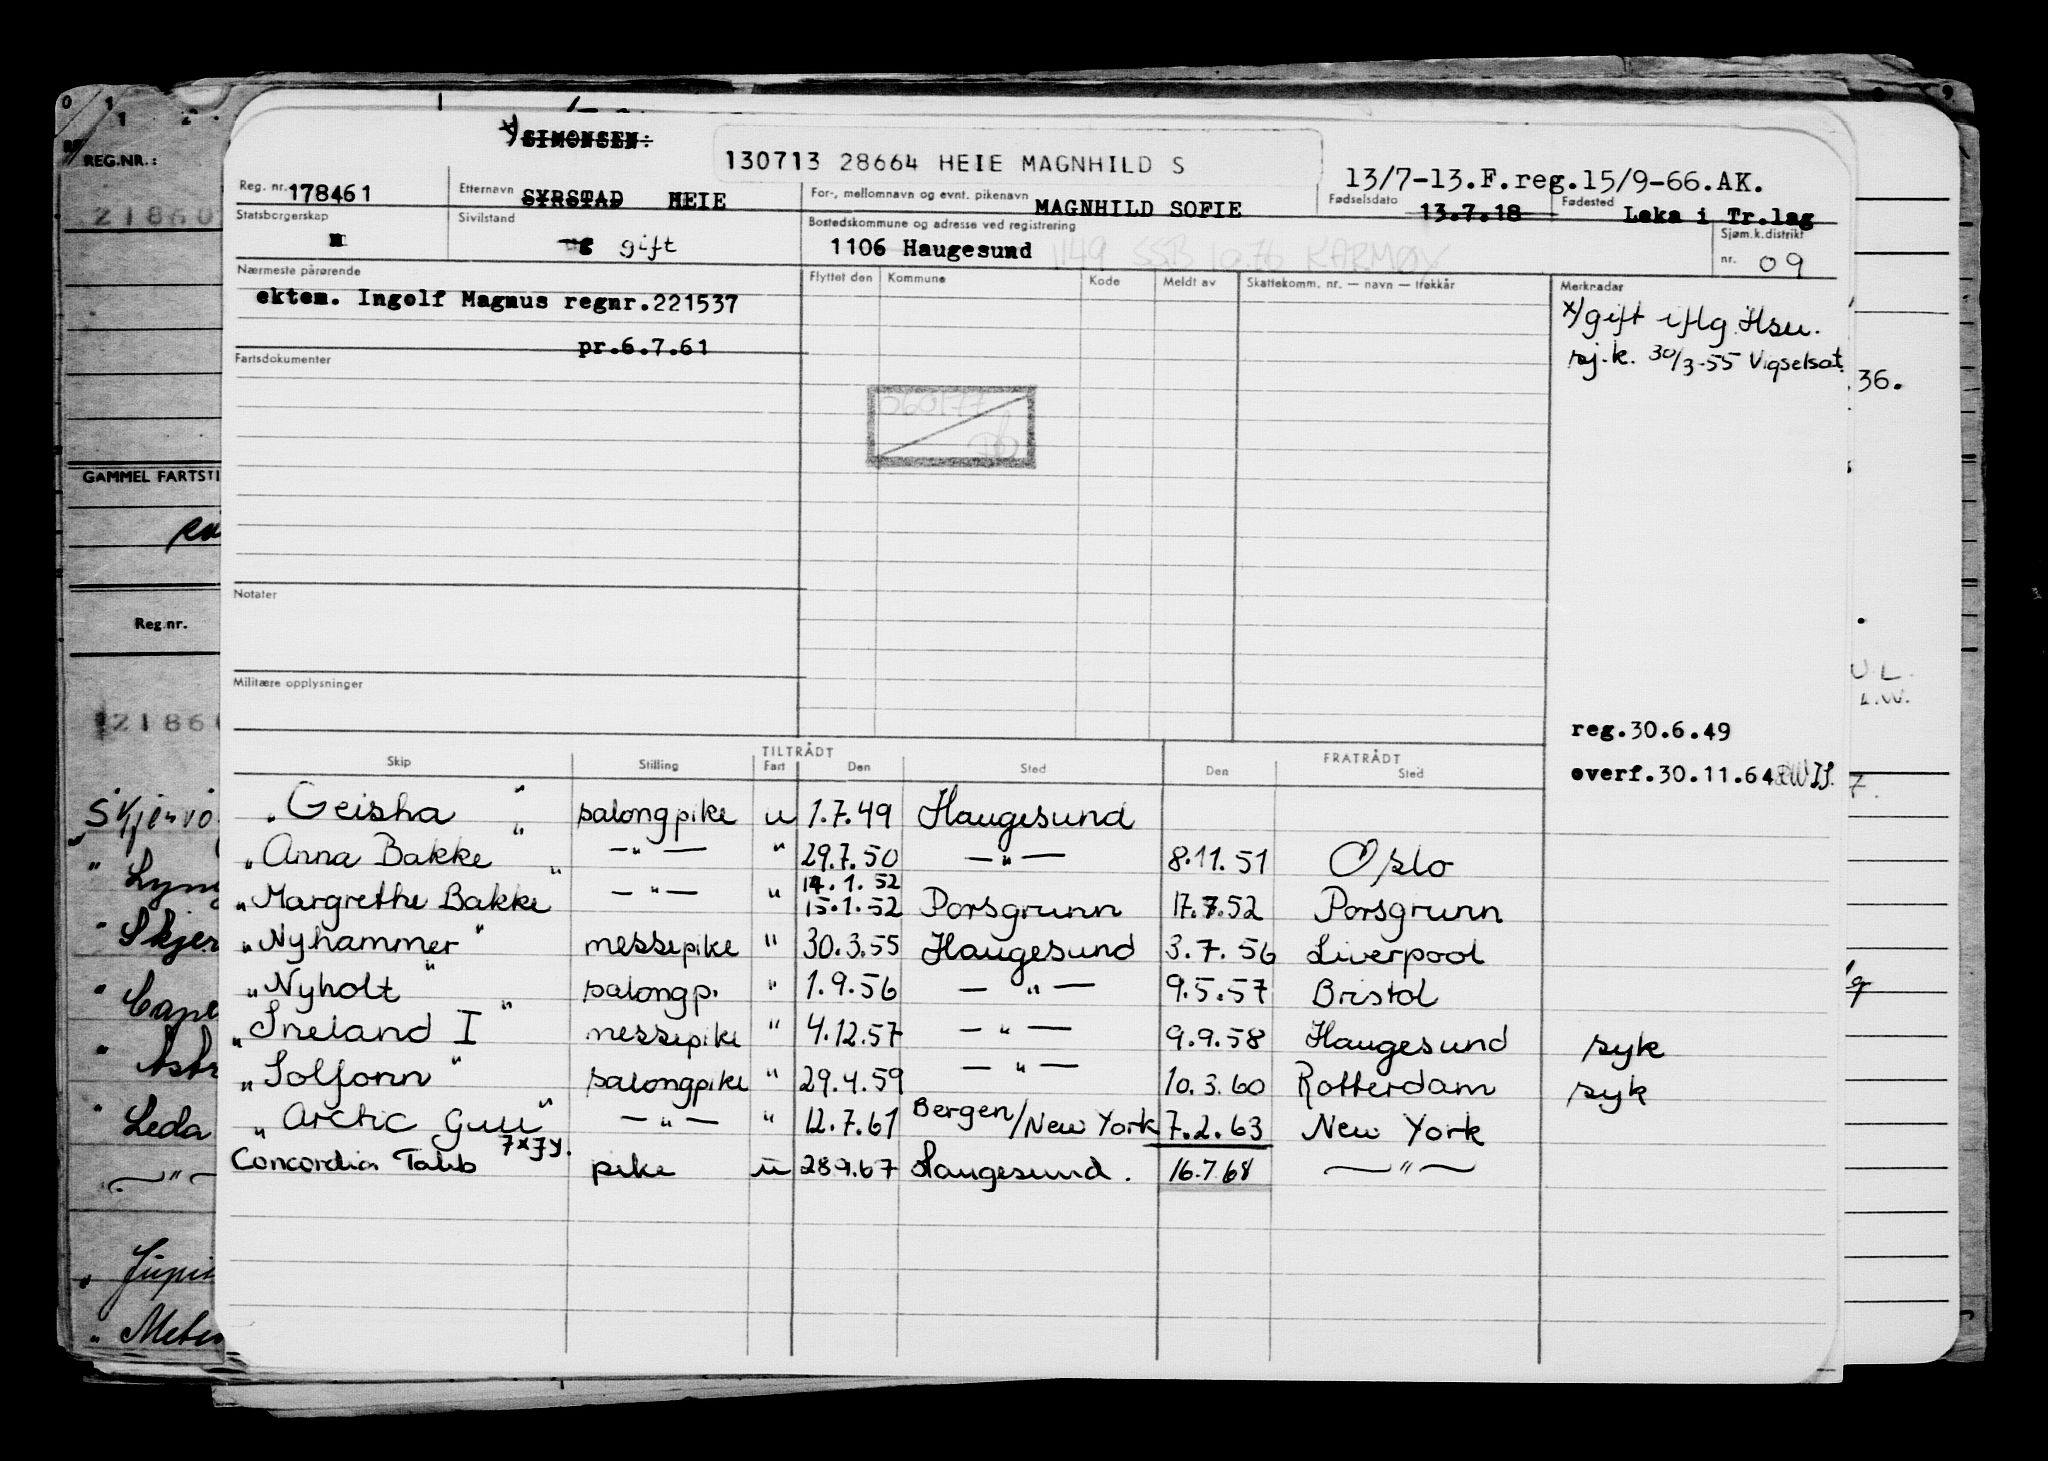 x) SIMONSEN÷
130713 28664 HEIE MAGNHILD S
13/7-13.F.reg.15/9-66.AK.
REG.NR.:
Reg. nr. 178461
Etternavn SYRSTAD HEIE
For-, mellomnavn og evnt. pikenavn MAGNHILD SOFIE
Fødselsdato 13.7.18
Fødested Leka i Tr.lag
Statsborgerskap n
Sivilstand ug gift
Bostedskommune og adresse ved registrering
1106 Haugesund 1149 SSB 10.76 KARMØY
Sjøm.k.distrikt
nr. 09
Nærmeste pårørende
ektem. Ingolf Magnus regnr.221537
pr.6.7.61
Flyttet den Kommune Kode Meldt av Skattekomm. nr. — navn — trekkår
Merknader
x/gift iflg. Hsu.
sj.k. 30/3-55 Vigselsat.
36.
Fartsdokumenter
GAMMEL FARTSTI
Notater
Reg.nr.
Militære opplysninger
reg.30.6.49
overf.30.11.64
TILTRÅDT FRATRÅDT
Skip Stilling Fart Den Sted Den Sted
"Geisha" salongpike u 1.7.49 Haugesund
"Anna Bakke" —"— " 29.7.50 —"— 8.11.51 Oslo
14.1.52
"Margrethe Bakke" —"— " 15.1.52 Porsgrunn 17.7.52 Porsgrunn
"Nyhammer" messepike " 30.3.55 Haugesund 3.7.56 Liverpool
"Nyholt" salongp. " 1.9.56 —"— 9.5.57 Bristol
"Sneland I" messepike " 4.12.57 —"— 9.9.58 Haugesund syk
"Solfonn" salongpike " 29.4.59 —"— 10.3.60 Rotterdam syk
"Arctic Gull" —"— " 12.7.61 Bergen/New York 7.2.63 New York
Concordia Taleb 7×7y. pike u 28.9.67 Haugesund. 16.7.68 —"—
Leda